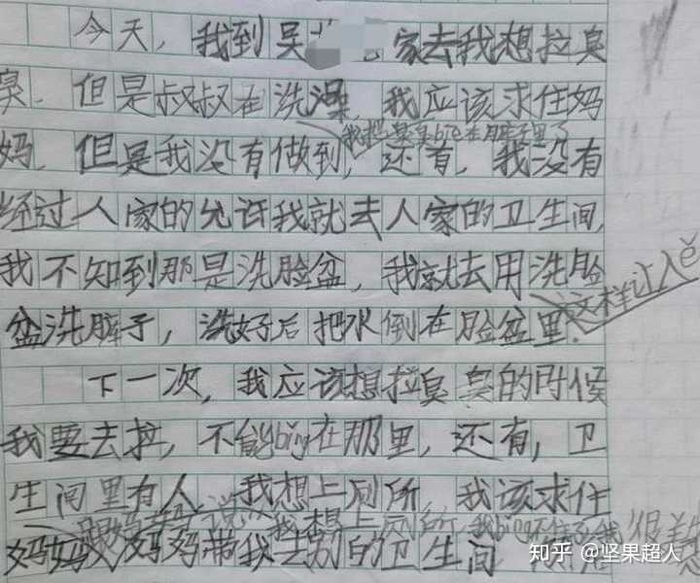 今天，我到吴 家去我想拉臭
臭，但是叔叔在洗澡，我应该求住妈
我把臭臭bie在脖子里了
妈，但是我没有做到，还有，我没有
经过人家的允许我就去人家的卫生间，
我不知到那是洗脸盆，我就去用洗脸
这样让人
盆洗脖子，洗好后把水倒在脸盆里。
下一次，我应该想拉臭臭的时候
我要去拉，不能bing在那里，还有，卫
生间里有人，我想上厕所，我该求住
跟妈妈说 我想上厕所
妈妈 妈妈带我去别的卫生间
知乎 @坚果超人